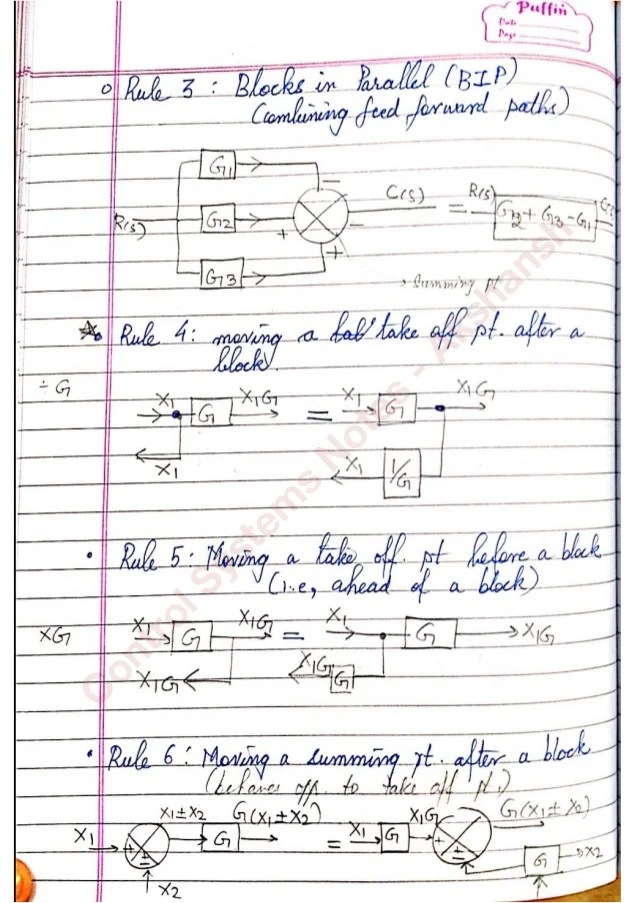 Puffin
Date
Page
Rule 3 : Blocks in Parallel (BIP)
(combining feed forward paths)
G1
−
R(s)
G2
+
−
C(s)
=
R(s)
G2 + G3 − G1
C(s)
G3
+
summing pt
Rule 4 : moving a take off pt. after a
block.
÷ G
X1
G
X1G
=
X1
G
X1G
X1
X1
1/G
Rule 5 : Moving a take off. pt before a block
(i.e, ahead of a block)
XG
X1
G
X1G
=
X1
G
X1G
X1G
X1G
G
Rule 6 : Moving a summing pt. after a block
(behaves opp. to take off pt.)
X1
+
±
X1 ± X2
G
G(X1 ± X2)
=
X1
G
X1G
+
±
G(X1 ± X2)
X2
G
X2
Control Systems Notes - Akshansh